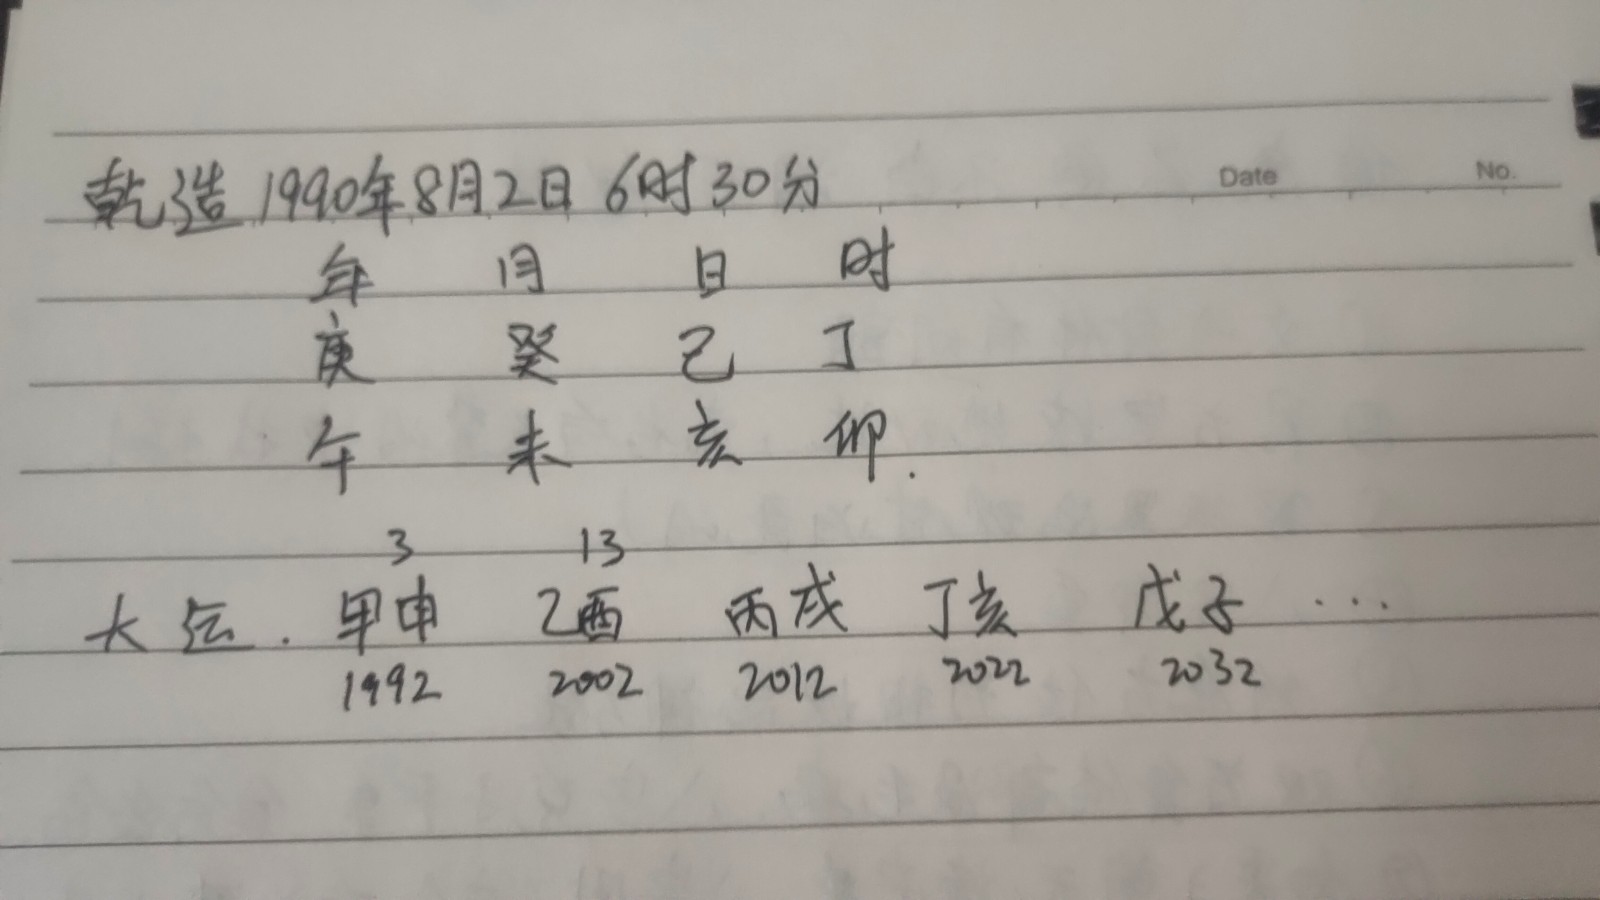 Date No.
乾造 1990年8月2日 6时30分
年 月 日 时
庚 癸 己 丁
午 未 亥 卯.
3 13
大运. 甲申 乙酉 丙戌 丁亥 戊子 ...
1992 2002 2012 2022 2032